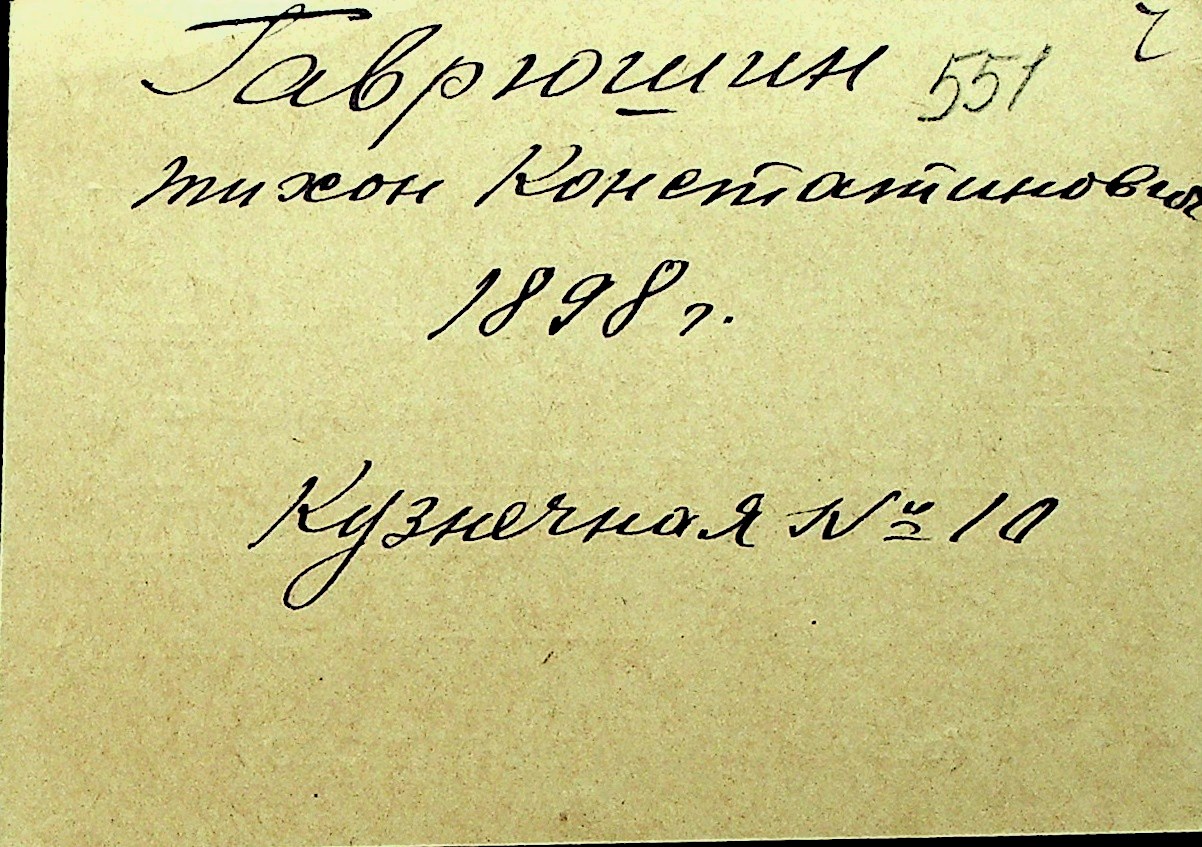 Гаврюшин 551
тихон Констатинович
1898 г.
Кузнечная № 10